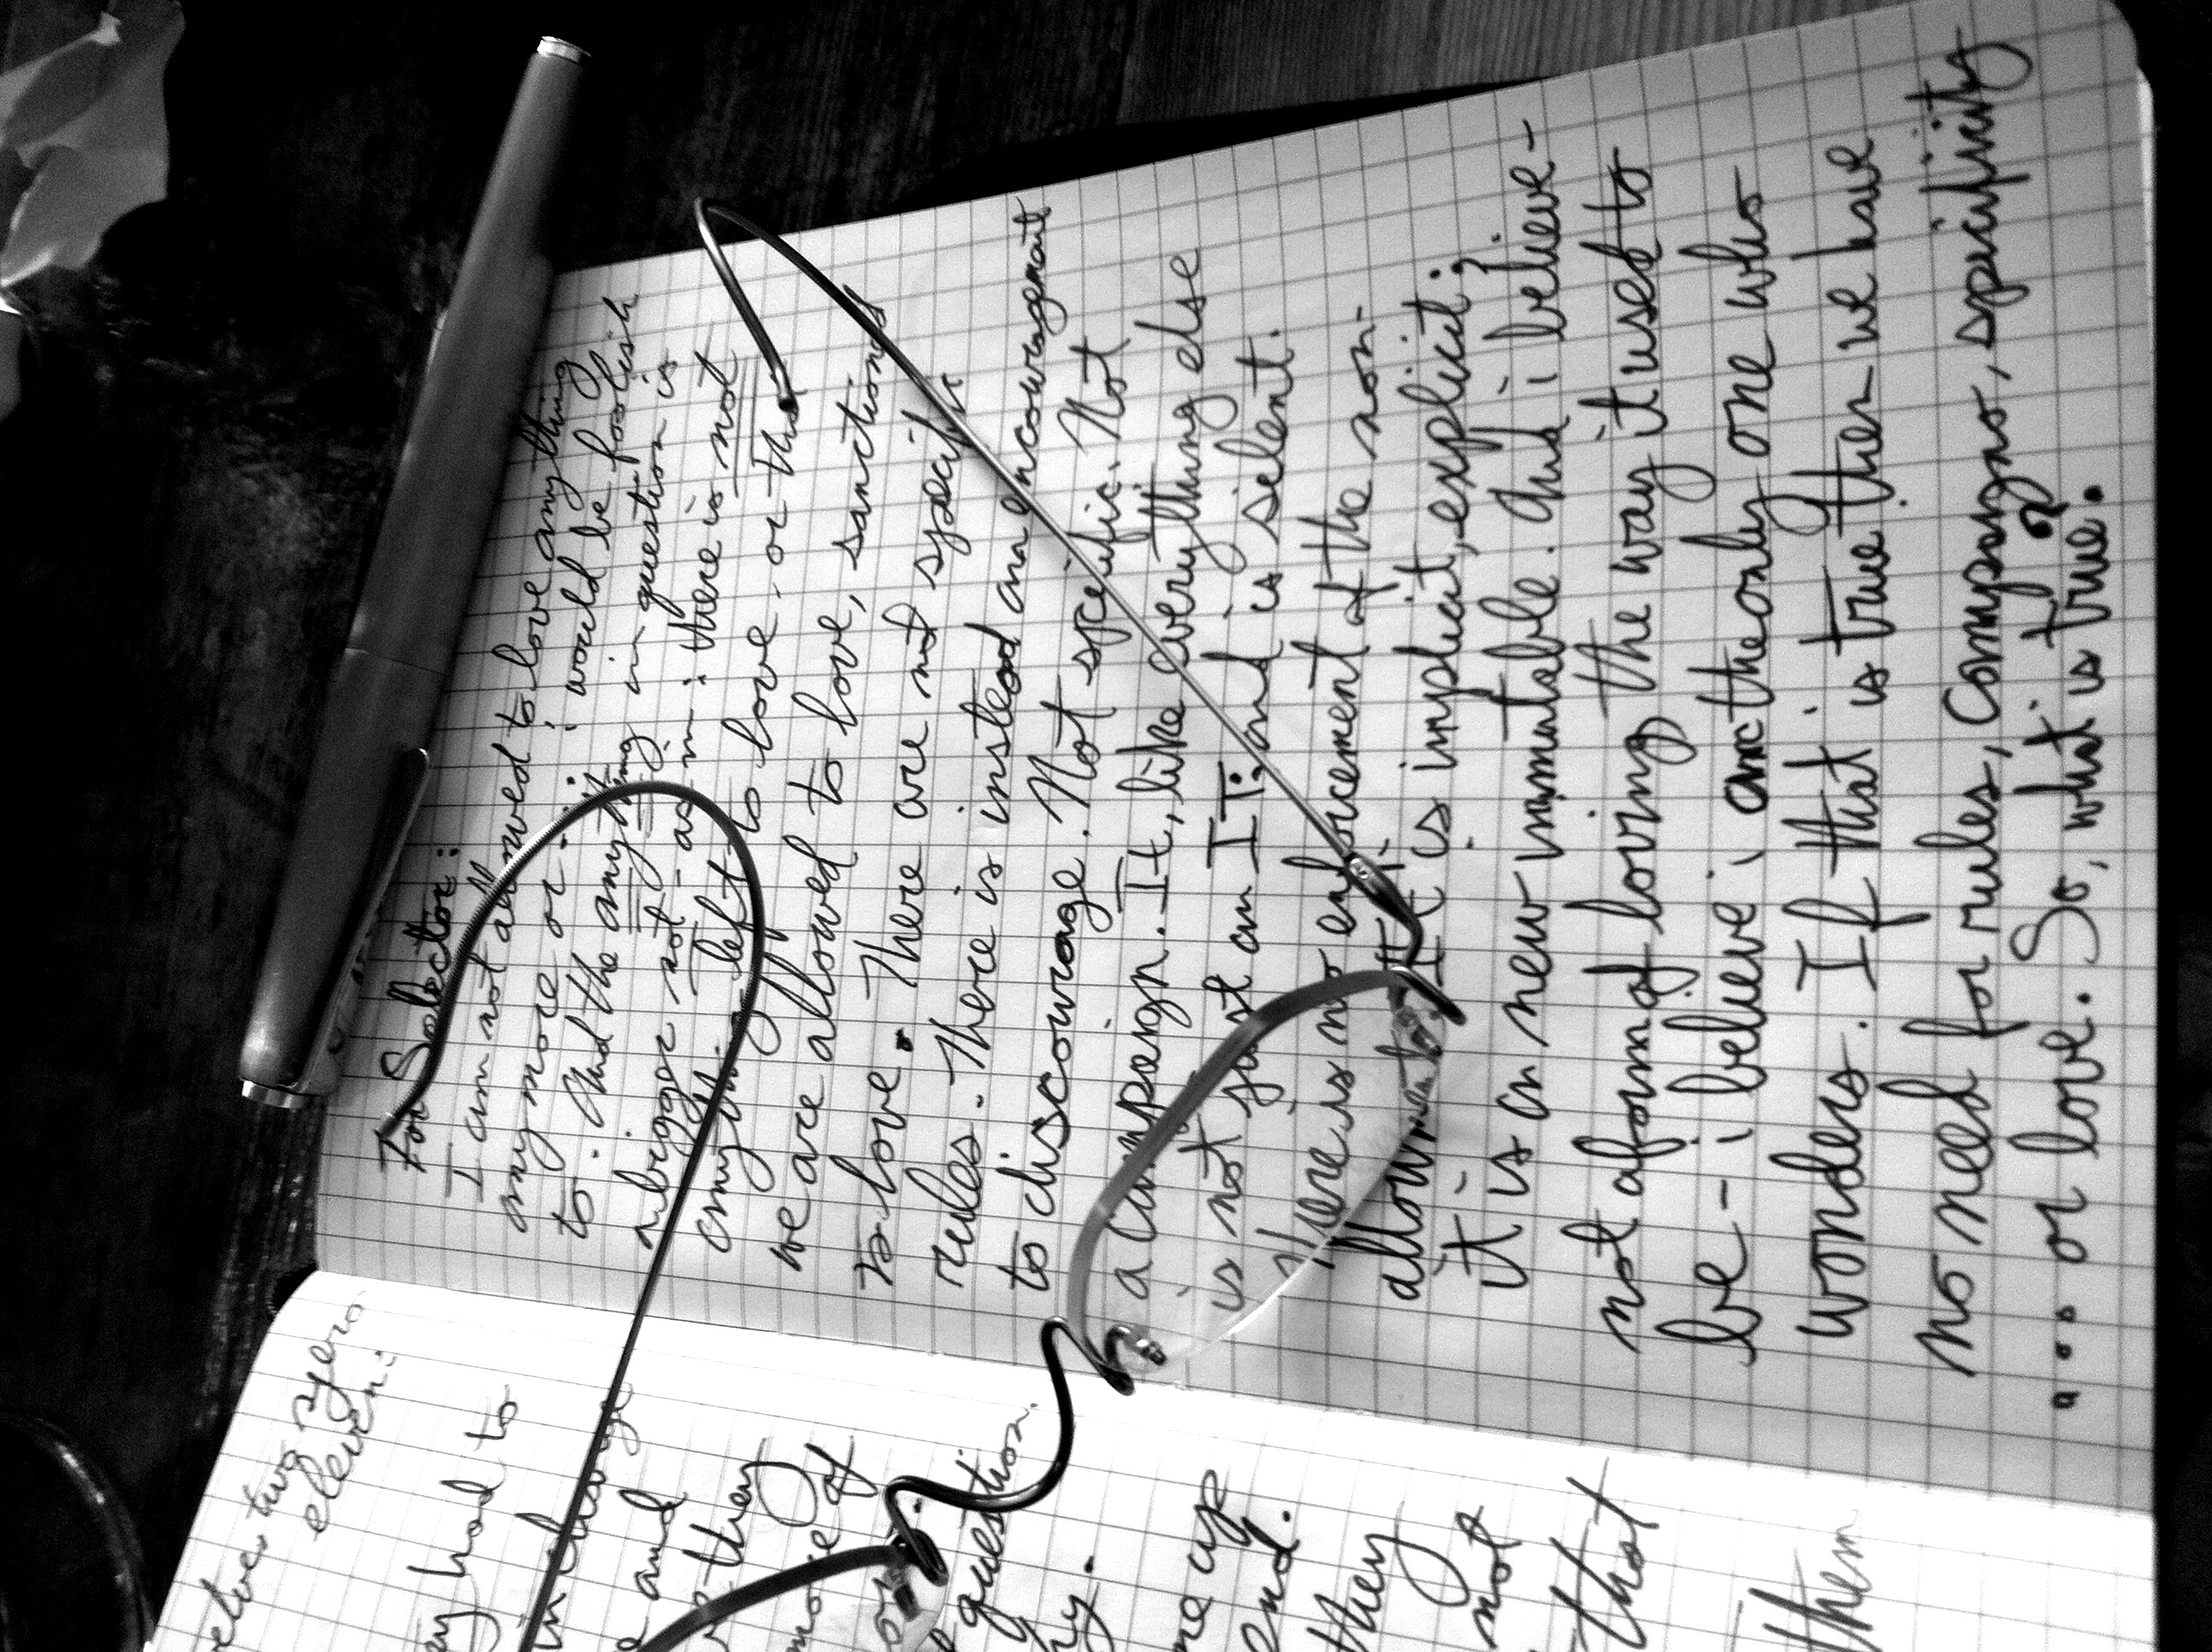 twelve two zero
eleven:
had to
in charge
and
they
more of
question.
up
end.
they
not
that
them
For Solector:
I am not allowed to love anything
anymore or i would be foolish
to. And the anything in question is
a bigger not - as in: there is not
anything left to love. or that
we are allowed to love, sanctioned
to love. There are not specific
rules. There is instead an encouragement
to discourage. Not specific. Not
a campaign. It, like everything else
is not just an IT: and is silent.
There is no enforcement of the non-
allowment. It is implicit, explicit;
it is a new immutable. And i believe-
not a form of loving the way it used to
be - i believe i am the only one who
wonders. If that is true then we have
no need for rules, campaigns, specificity
... or love. So, what is true.